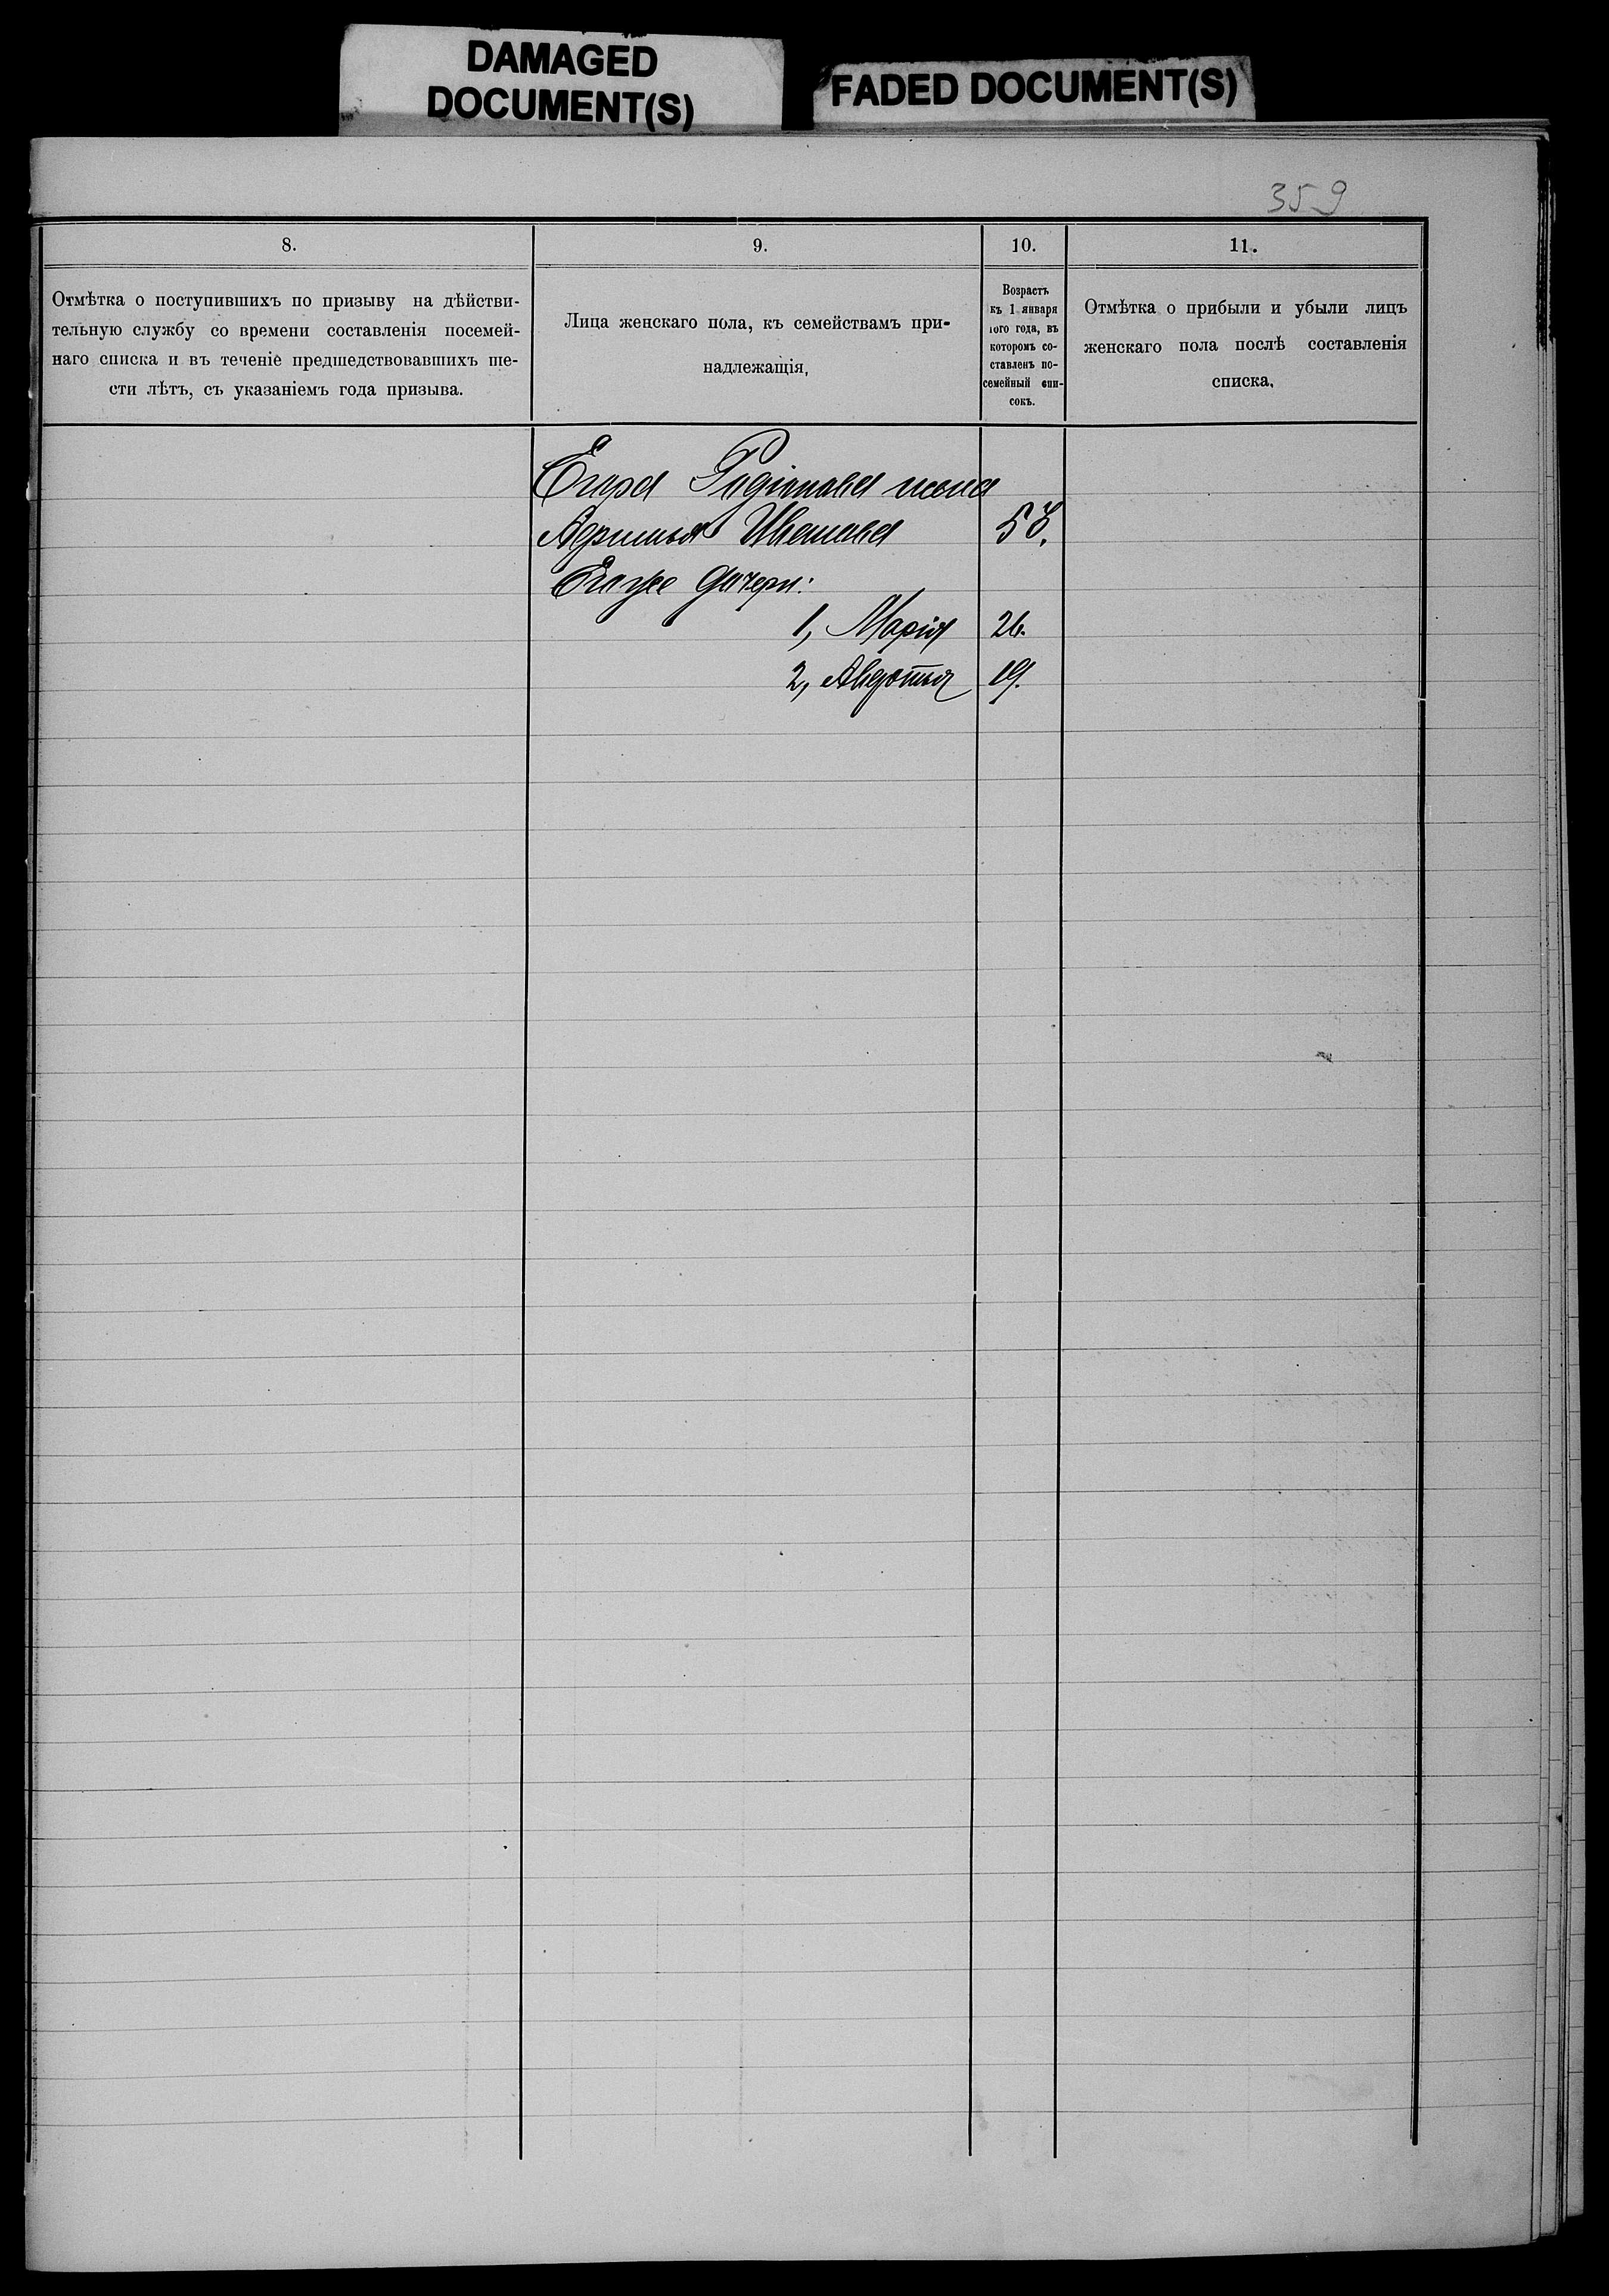 DAMAGED
DOCUMENT(S)
FADED DOCUMENT(S)
359
8.
Отмѣтка о поступившихъ по призыву на дѣйстви-
тельную службу со времени составленія посемей-
наго списка и въ теченіе предшедствовавшихъ ше-
сти лѣтъ, съ указаніемъ года призыва.
9.
Лица женскаго пола, къ семействамъ при-
надлежащія,
10.
Возрастъ
къ 1 января
того года, въ
которомъ со-
ставленъ по-
семейный спи-
сокъ.
11.
Отмѣтка о прибыли и убыли лицъ
женскаго пола послѣ составленія
списка.
Егора Родіонова жена
Иванова
Его же дочери:
1, Марія 26.
2, Авдотья 19.